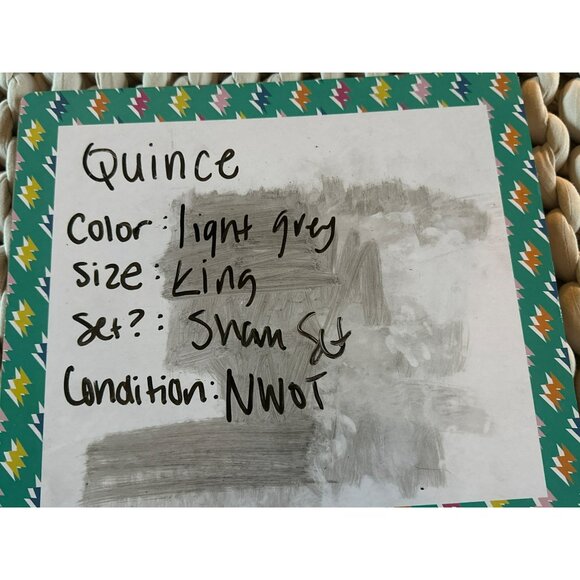 Quince
Color: light grey
Size: King
Set?: Sham Set
Condition: NWOT